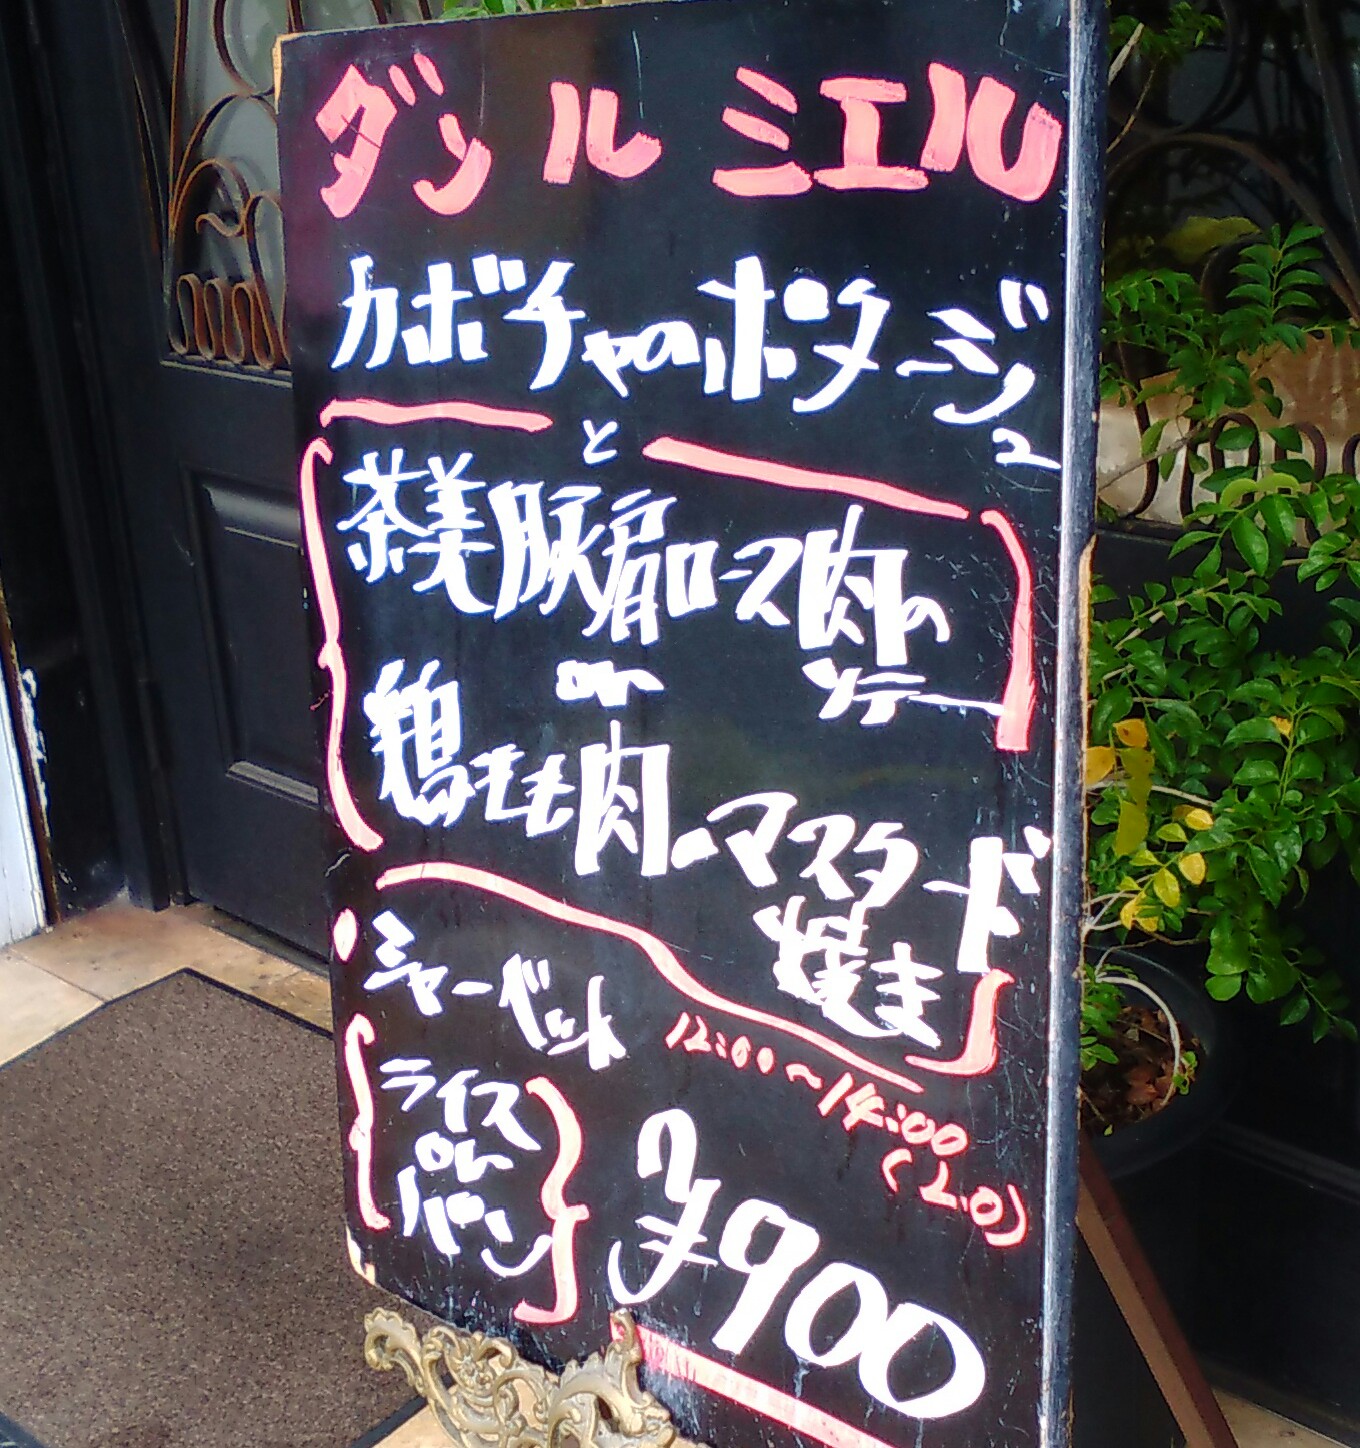 ダン ル ミエル
カボチャのポタージュ
と
茶美豚肩ロース肉の
ソテー
or
鶏もも肉のマスタード
焼き
シャーベット
12:00〜14:00
(L.O)
ライス
or
パン
¥900